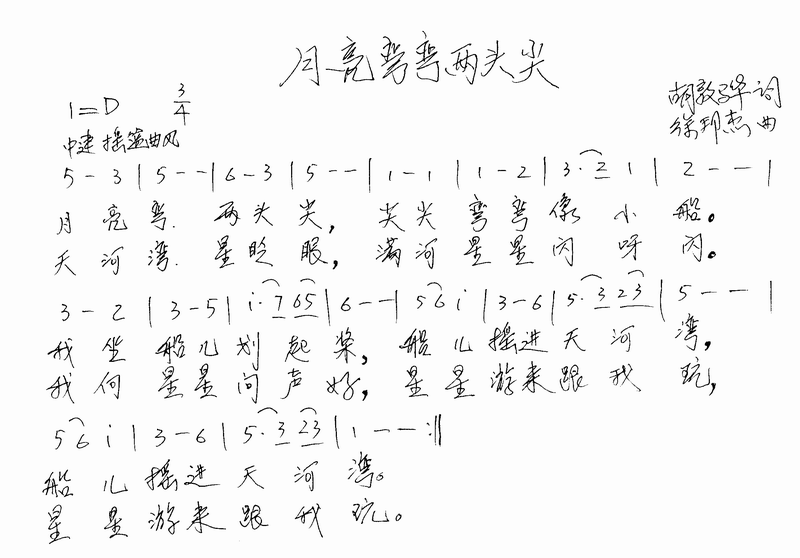 月亮弯弯两头尖
1=D 3/4
胡敦骅词
中速 摇篮曲风
徐邦杰曲
5 - 3 | 5 - - | 6 - 3 | 5 - - | 1 - 1 | 1 - 2 | 3· 2 1 | 2 - - |
月亮弯. 两头尖, 尖尖弯弯像小船。
天河湾. 星眨眼, 满河星星闪呀闪。
3 - 2 | 3 - 5 | i· 7 6 5 | 6 - - | 5 6 i | 3 - 6 | 5· 3 2 3 | 5 - - |
我坐船儿划起桨, 船儿摇进天河湾,
我向星星问声好, 星星游来跟我玩,
5 6 i | 3 - 6 | 5· 3 2 3 | 1 - - :||
船儿摇进天河湾。
星星游来跟我玩。